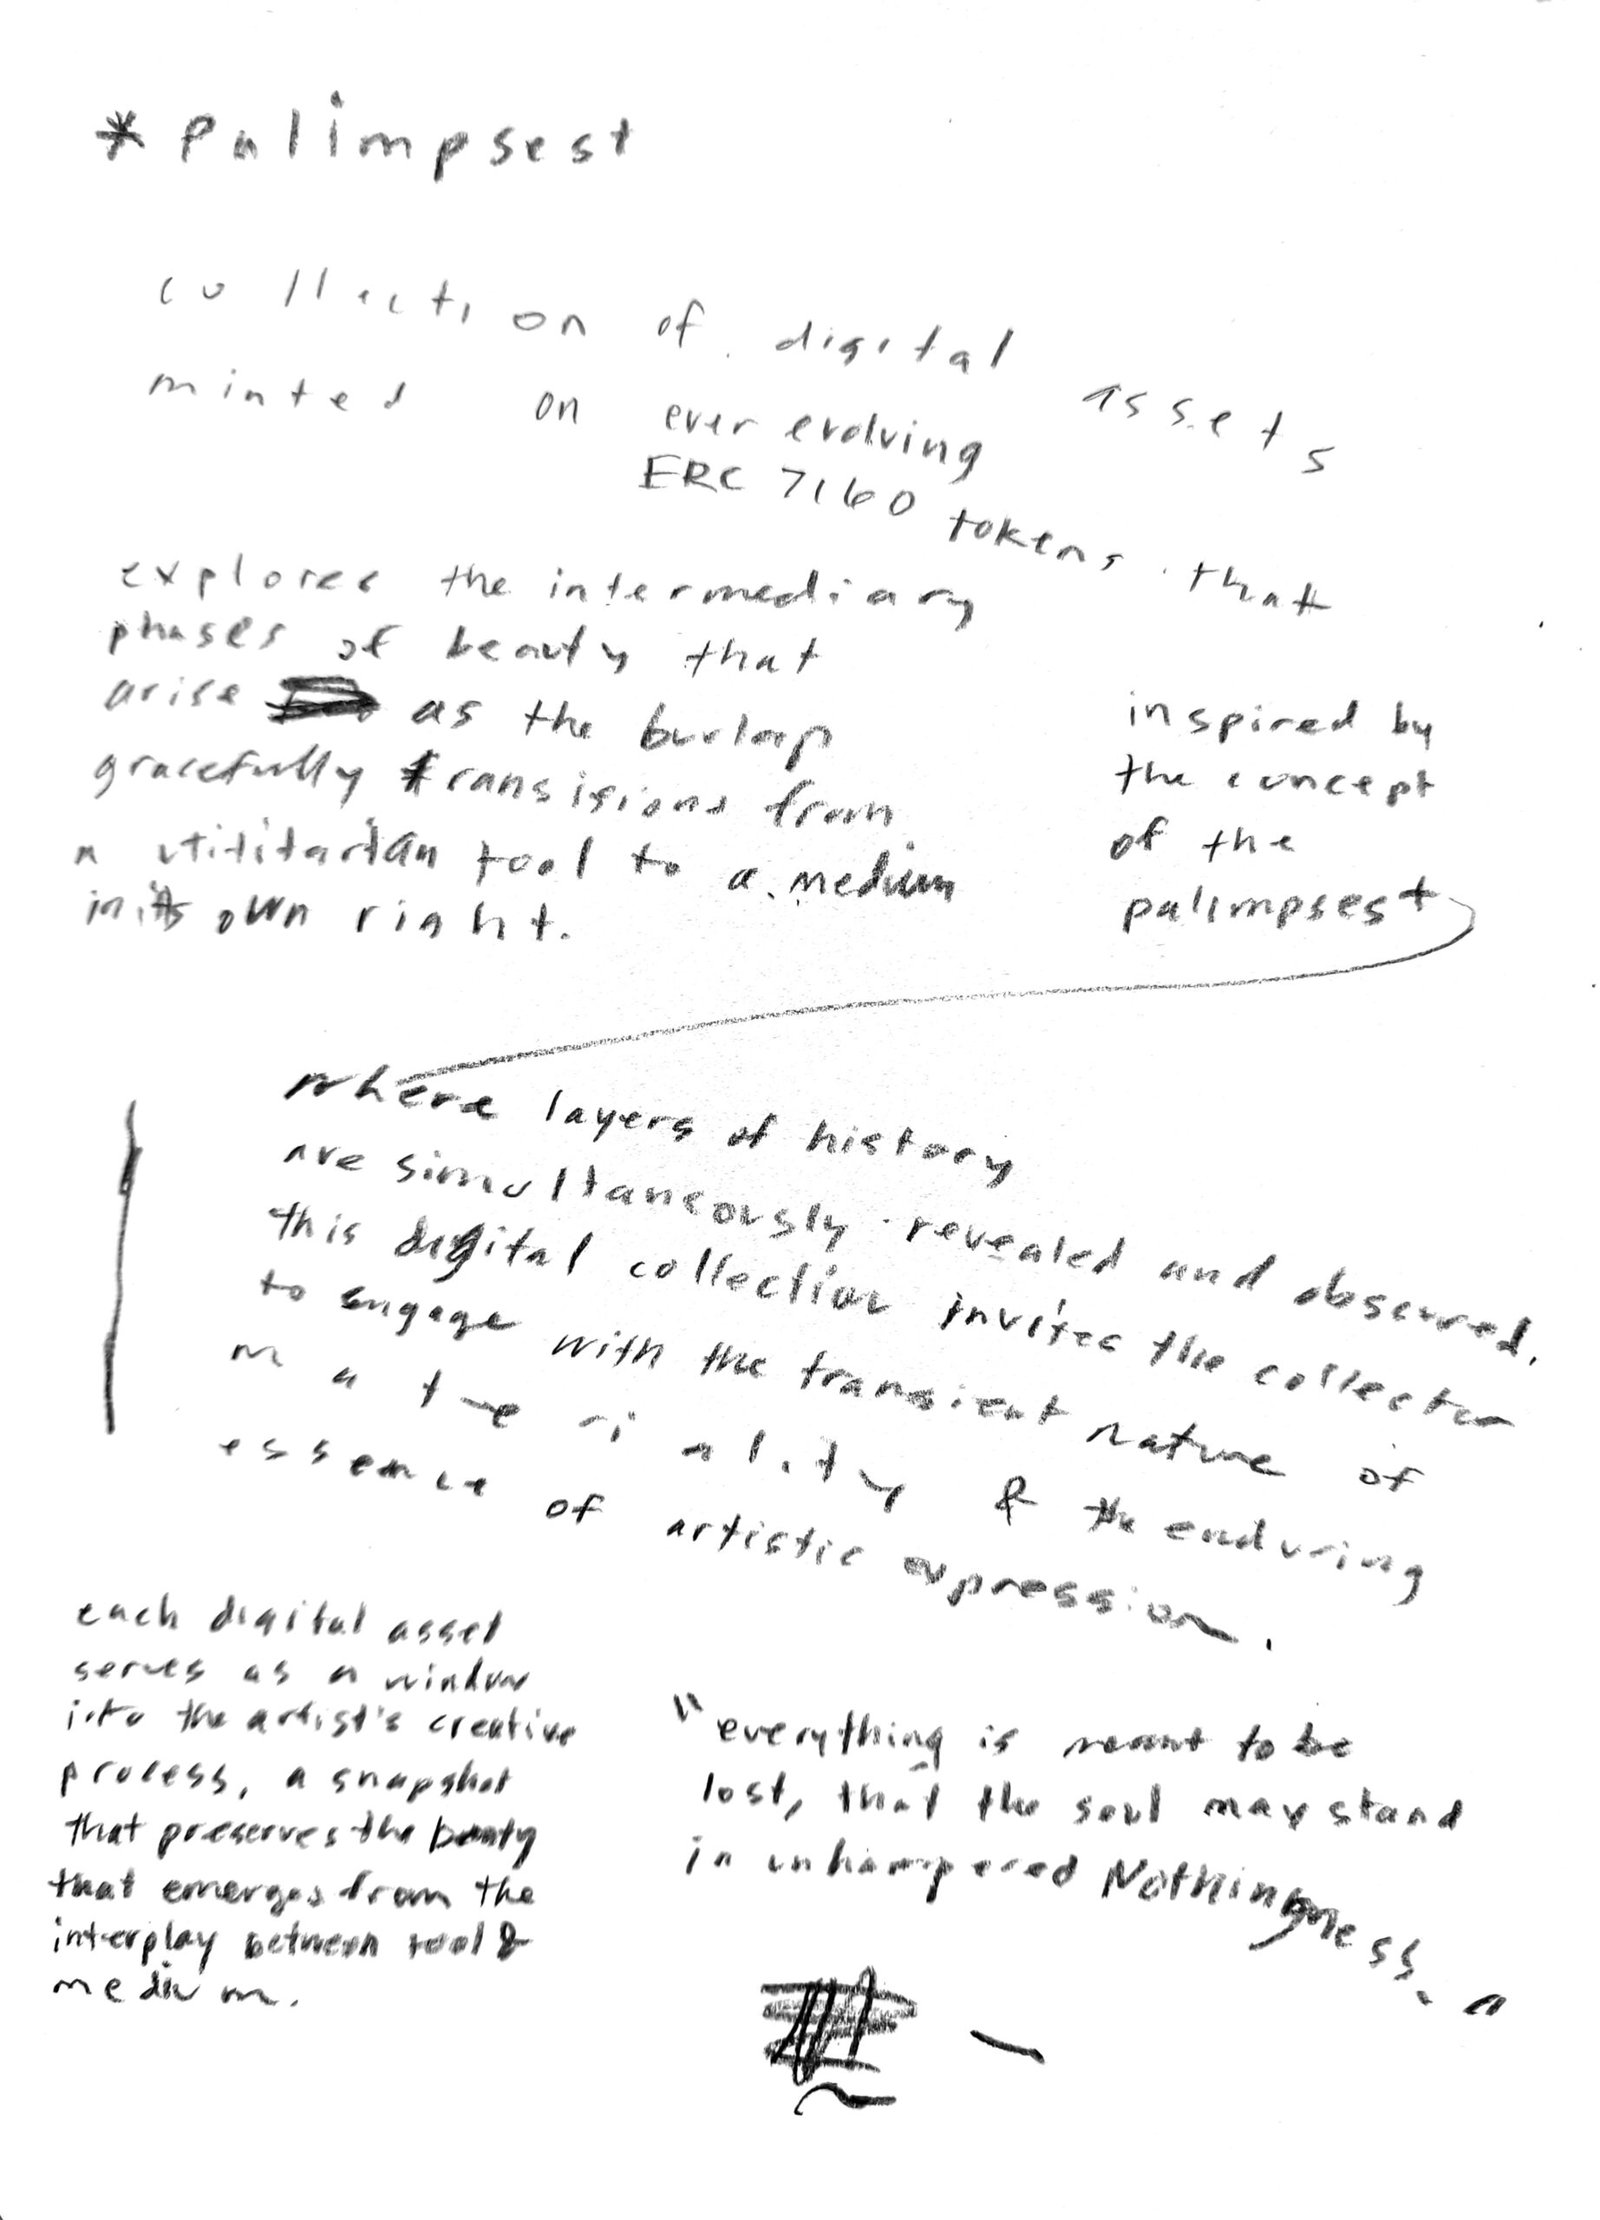 * Palimpsest
collection of digital assets
minted on ever evolving
ERC 7160 tokens that
explores the intermediary
phases of beauty that
arise as the burlap
gracefully transisions from
a utilitarian tool to a medium
in its own right.
inspired by
the concept
of the
palimpsest
where layers of history
are simultaneously revealed and obscured.
this digital collection invites the collector
to engage with the transient nature of
materiality & the enduring
essence of artistic expression.
each digital asset
serves as a window
into the artist's creative
process, a snapshot
that preserves the beauty
that emerges from the
interplay between tool &
medium.
"everything is meant to be
lost, that the soul may stand
in unhampered Nothingness."